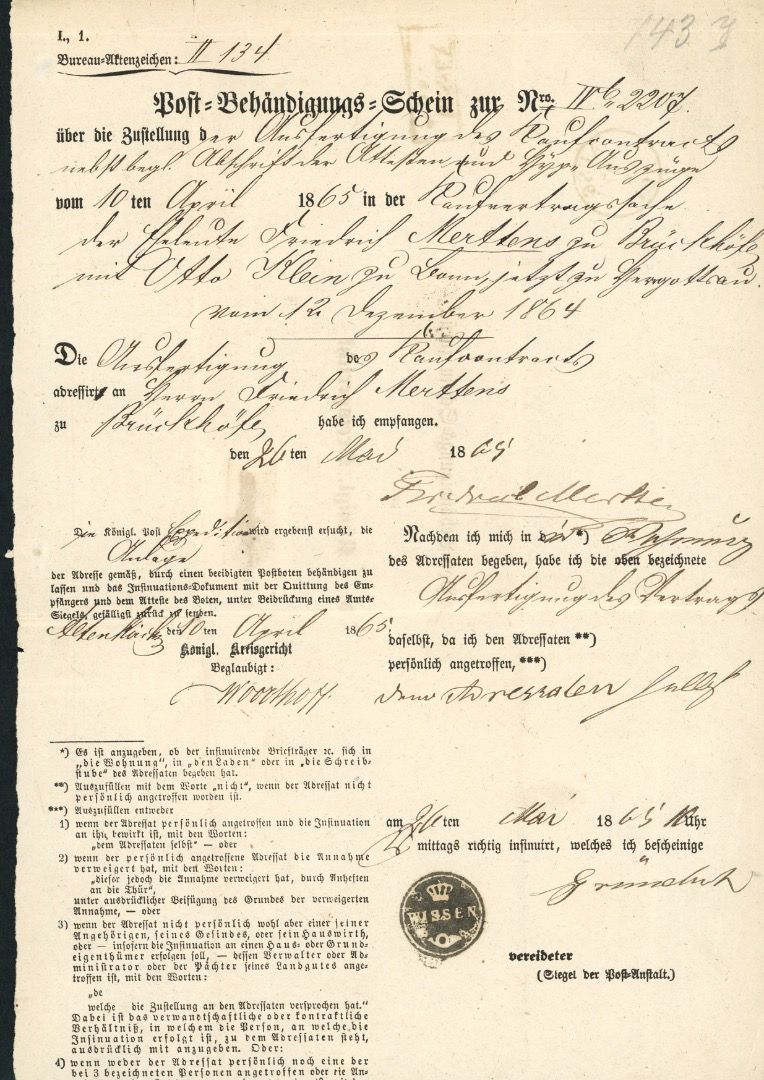 I., 1.
143
Bureau-Aktenzeichen: II 134
Post-Behändigungs-Schein zur Nro. IVb 2207.
über die Zustellung der Ausfertigung des Kaufcontracts
nebst begl. Abschrift der Attesten und Hyp. Auszüge
vom 10 ten April 1865 in der Kaufvertragssache
der Eheleute Friedrich Merttens zu Brückhöfe
mit Otto Klein zu Bonn, jetzt zu Hergottsau.
vom 12. Dezember 1864
Die Ausfertigung des Kaufcontracts
adressirt an Herrn Friedrich Merttens
zu Brückhöfe habe ich empfangen.
den 26 ten Mai 1865
Die Königl. Post Expedition wird ergebenst ersucht, die
Anlage
der Adresse gemäß, durch einen beeidigten Postboten behändigen zu
lassen und das Insinuations-Dokument mit der Quittung des Em-
pfängers und dem Atteste des Boten, unter Beidrückung eines Amts-
Siegels, gefälligst zurück zu senden.
den 10 ten April 1865
Königl. Kreisgericht
Beglaubigt:
Woorthoff.
Nachdem ich mich in die *) Wohnung
des Adressaten begeben, habe ich die oben bezeichnete
Ausfertigung des Vertrags
daselbst, da ich den Adressaten **)
persönlich angetroffen, ***)
dem Adressaten selbst
am 26 ten Mai 1865 Uhr
mittags richtig insinuirt, welches ich bescheinige
WISSEN
vereideter
(Siegel der Post-Anstalt.)
*) Es ist anzugeben, ob der insinuirende Briefträger ꝛc. sich in
„die Wohnung“, in „den Laden“ oder in „die Schreib-
stube“ des Adressaten begeben hat.
**) Auszufüllen mit dem Worte „nicht“, wenn der Adressat nicht
persönlich angetroffen worden ist.
***) Auszufüllen entweder
1) wenn der Adressat persönlich angetroffen und die Insinuation
an ihn bewirkt ist, mit den Worten:
„dem Adressaten selbst“ — oder
2) wenn der persönlich angetroffene Adressat die Annahme
verweigert hat, mit den Worten:
„dieser jedoch die Annahme verweigert hat, durch Anheften
an die Thür“,
unter ausdrücklicher Beifügung des Grundes der verweigerten
Annahme, — oder
3) wenn der Adressat nicht persönlich wohl aber einer seiner
Angehörigen, seines Gesindes, oder sein Hauswirth,
oder — insofern die Insinuation an einen Haus- oder Grund-
eigenthümer erfolgen soll, — dessen Verwalter oder Ad-
ministrator oder der Pächter seines Landgutes ange-
troffen ist, mit den Worten:
„de
welche die Zustellung an den Adressaten versprochen hat.“
Dabei ist das verwandtschaftliche oder kontraktliche
Verhältniß, in welchem die Person, an welche die
Insinuation erfolgt ist, zu dem Adressaten steht,
ausdrücklich mit anzugeben. Oder:
4) wenn weder der Adressat persönlich noch eine der
bei 3 bezeichneten Personen angetroffen oder die An-